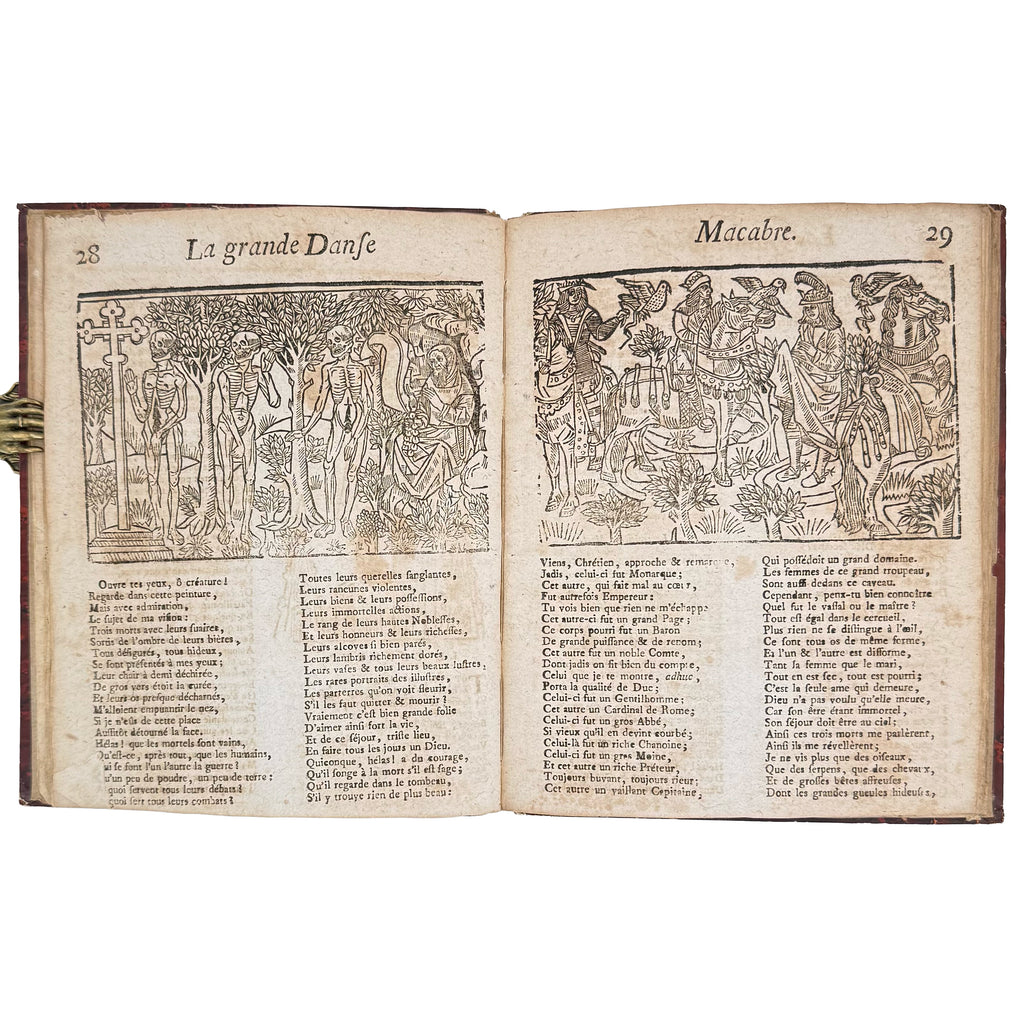 28
La grande Danſe
Ouvre tes yeux, ô créature !
Regarde dans cette peinture,
Mais avec admiration,
Le ſujet de ma viſion :
Trois morts avec leurs ſuaires,
Sortis de l'ombre de leurs bières,
Tous défigurés, tous hideux,
Se ſont préſentés à mes yeux ;
Leur chair à demi déchirée,
De gros vers étoit la curée,
Et leurs os preſque décharnés,
M'alloient empuantir le nez,
Si je n'eûs de cette place
Auſſitôt détourné la face.
Hélas ! que les mortels ſont vains,
Qu'eſt-ce, après tout, que les humains,
ui ſe font l'un l'autre la guerre ?
u'un peu de poudre, un peu de terre :
quoi ſervent tous leurs débats ?
quoi ſert tous leurs combats ?
Toutes leurs querelles ſanglantes,
Leurs rancunes violentes,
Leurs biens & leurs poſſeſſions,
Leurs immortelles actions,
Le rang de leurs hautes Nobleſſes,
Et leurs honneurs & leurs richeſſes,
Leurs alcoves ſi bien parés,
Leurs lambris richement dorés,
Leurs vaſes & tous leurs beaux luſtres,
Les rares portraits des illuſtres,
Les parterres qu'on voit fleurir,
S'il les faut quitter & mourir ?
Vraiement c'eſt bien grande folie
D'aimer ainſi fort la vie,
Et de ce ſéjour, triſte lieu,
En faire tous les jours un Dieu.
Quiconque, hélas ! a du courage,
Qu'il ſonge à la mort s'il eſt ſage ;
Qu'il regarde dans le tombeau,
S'il y trouve rien de plus beau :
Macabre.
29
Viens, Chrétien, approche & remarque,
Jadis, celui-ci fut Monarque ;
Cet autre, qui fait mal au cœur,
Fut autrefois Empereur :
Tu vois bien que rien ne m'échappe
Cet autre-ci fut un grand Page ;
Ce corps pourri fut un Baron
De grande puiſſance & de renom ;
Cet autre fut un noble Comte,
Dont jadis on fit bien du compte,
Celui que je te montre, adhuc,
Porta la qualité de Duc ;
Celui-ci fut un Gentilhomme ;
Cet autre un Cardinal de Rome ;
Celui-ci fut un gros Abbé,
Si vieux qu'il en devint courbé ;
Celui-là fut un riche Chanoine ;
Celui-ci fut un gros Moine,
Et cet autre un riche Préteur,
Toujours buvant, toujours rieur ;
Cet autre un vaillant Capitaine,
Qui poſſédoit un grand domaine.
Les femmes de ce grand troupeau,
Sont auſſi dedans ce caveau.
Cependant, peux-tu bien connoître
Quel fut le vaſſal ou le maître ?
Tout eſt égal dans le cercueil,
Plus rien ne ſe diſtingue à l'œil,
Ce ſont tous os de même forme,
Et l'un & l'autre eſt difforme,
Tant ſa femme que le mari,
Tout en eſt ſec, tout eſt pourri ;
C'eſt la ſeule ame qui demeure,
Dieu n'a pas voulu qu'elle meure,
Car ſon être étant immortel,
Son ſéjour doit être au ciel ;
Ainſi ces trois morts me parlèrent,
Ainſi ils me révellèrent ;
Je ne vis plus que des oiſeaux,
Que des ſerpens, que des chevaux,
Et de groſſes bêtes affreuſes,
Dont les grandes gueules hideuſes,